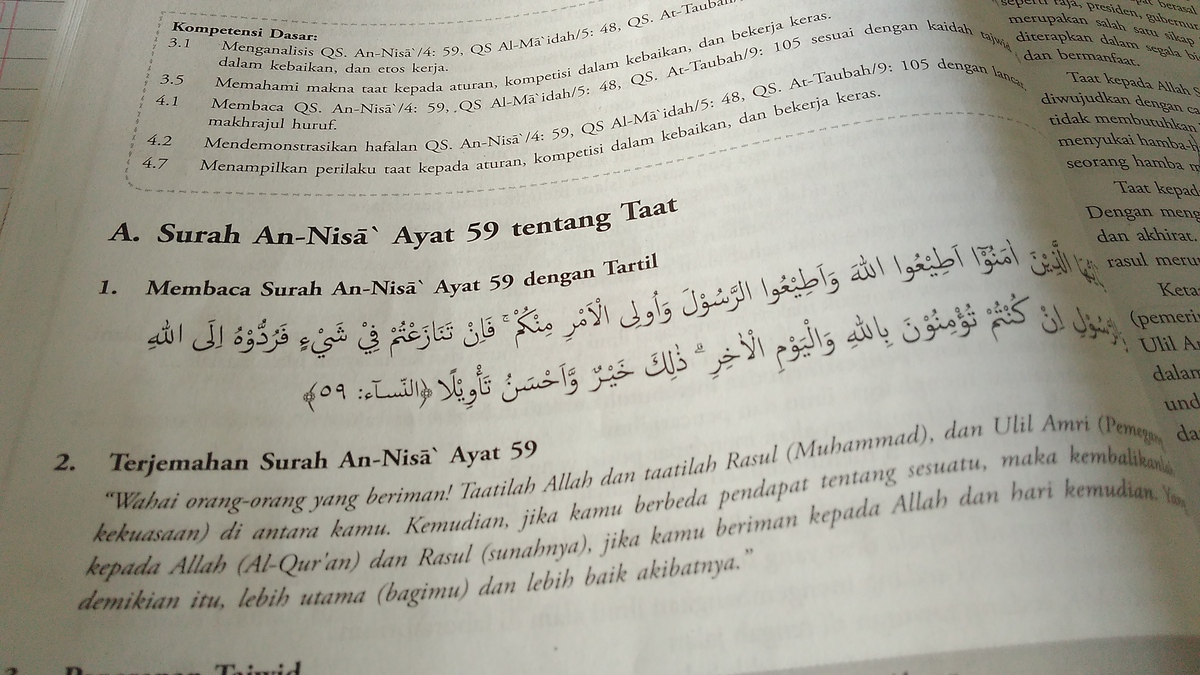 Kompetensi Dasar:
3.1 Menganalisis QS. An-Nisā`/4: 59, QS Al-Mā`idah/5: 48, QS. At-Taubah/
dalam kebaikan, dan etos kerja.
3.5 Memahami makna taat kepada aturan, kompetisi dalam kebaikan, dan bekerja keras.
4.1 Membaca QS. An-Nisā`/4: 59, QS Al-Mā`idah/5: 48, QS. At-Taubah/9: 105 sesuai dengan kaidah tajwid
makhrajul huruf.
4.2 Mendemonstrasikan hafalan QS. An-Nisā`/4: 59, QS Al-Mā`idah/5: 48, QS. At-Taubah/9: 105 dengan lancar.
4.7 Menampilkan perilaku taat kepada aturan, kompetisi dalam kebaikan, dan bekerja keras.
A. Surah An-Nisā` Ayat 59 tentang Taat
1. Membaca Surah An-Nisā` Ayat 59 dengan Tartil
الَّذِيْنَ اٰمَنُوْٓا اَطِيْعُوا اللّٰهَ وَاَطِيْعُوا الرَّسُوْلَ وَاُولِى الْاَمْرِ مِنْكُمْ ۚ فَاِنْ تَنَازَعْتُمْ فِيْ شَيْءٍ فَرُدُّوْهُ اِلَى اللّٰهِ
اِنْ كُنْتُمْ تُؤْمِنُوْنَ بِاللّٰهِ وَالْيَوْمِ الْاٰخِرِ ۗ ذٰلِكَ خَيْرٌ وَّاَحْسَنُ تَأْوِيْلًا ﴿النّسآء: ٥٩﴾
2. Terjemahan Surah An-Nisā` Ayat 59
“Wahai orang-orang yang beriman! Taatilah Allah dan taatilah Rasul (Muhammad), dan Ulil Amri (Pemegang
kekuasaan) di antara kamu. Kemudian, jika kamu berbeda pendapat tentang sesuatu, maka kembalikanlah
kepada Allah (Al-Qur'an) dan Rasul (sunahnya), jika kamu beriman kepada Allah dan hari kemudian. Yang
demikian itu, lebih utama (bagimu) dan lebih baik akibatnya.”
Tajwid
seperti raja, presiden, gubernur
merupakan salah satu sikap
diterapkan dalam segala
dan bermanfaat.
Taat kepada Allah
diwujudkan dengan
tidak membutuhkan
menyukai
seorang hamba
Taat
Dengan
dan akhirat.
rasul
dalam